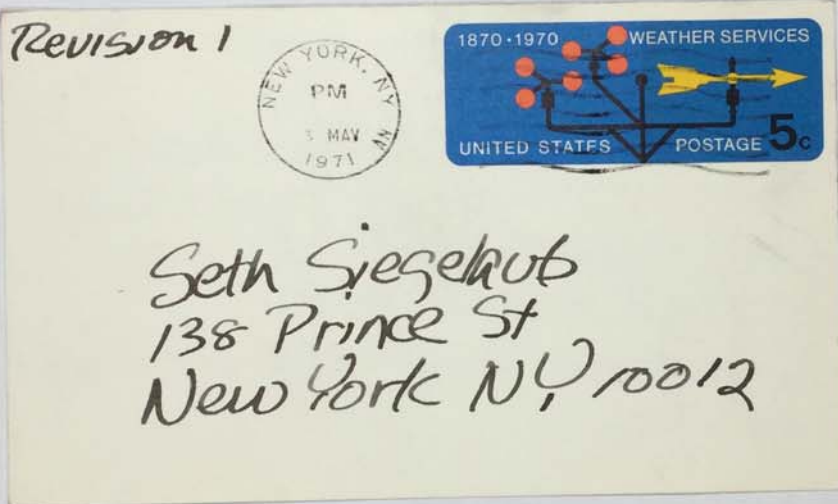 Revision 1
NEW YORK, NY
PM
3 MAY
1971
AN
1870·1970 WEATHER SERVICES
UNITED STATES POSTAGE 5c
Seth Siegelaub
138 Prince St
New York NY 10012